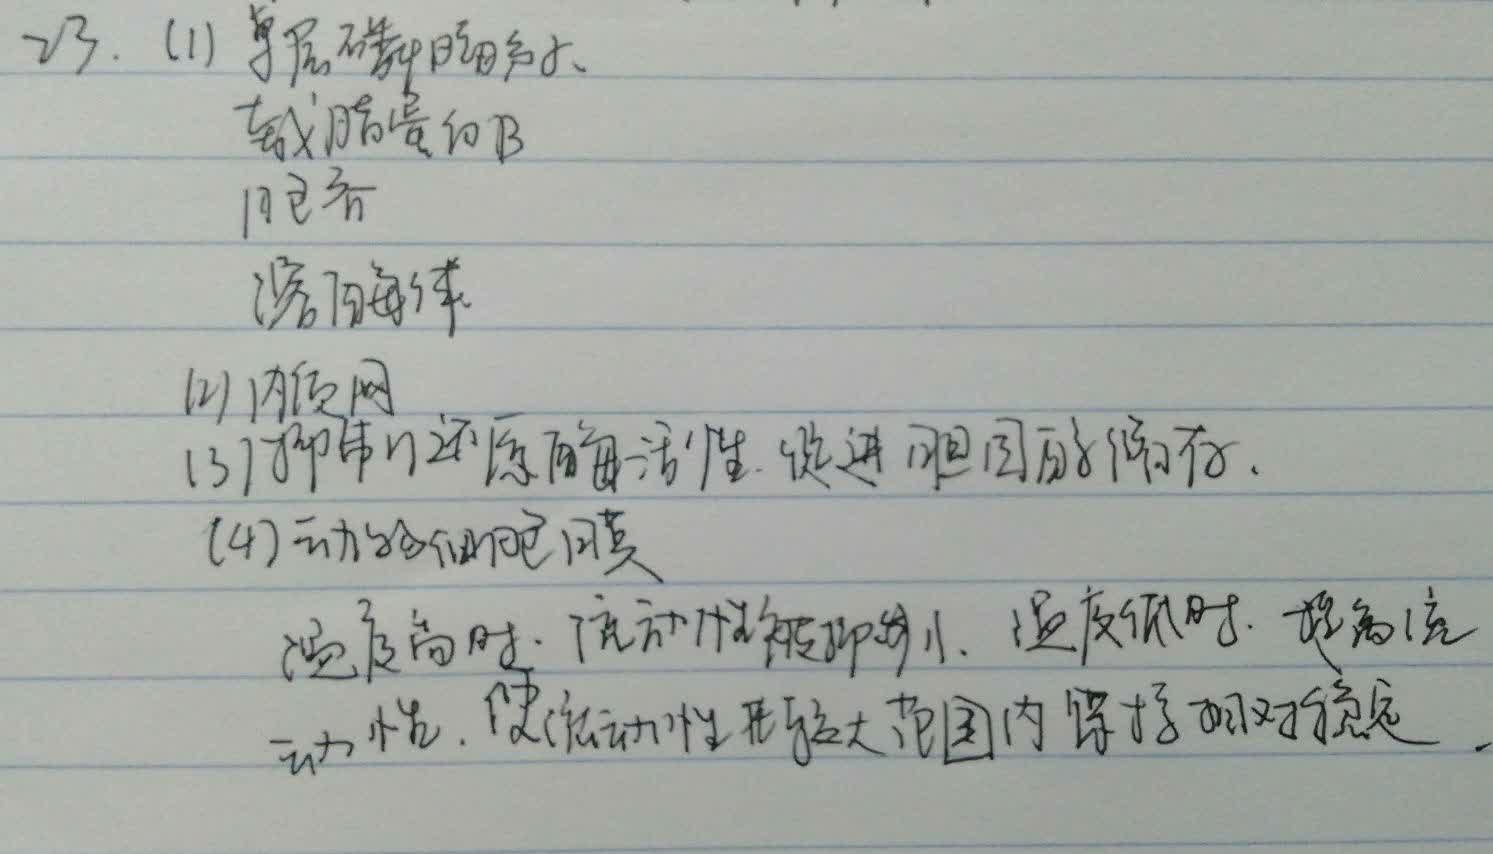 23. (1) 单层磷脂分子、
载脂蛋白B
胞吞
溶酶体
(2) 内质网
(3) 抑制还原酶活性. 促进胆固醇储存.
(4) 动物细胞膜
温度高时. 流动性被抑制. 温度低时. 提高流
动性. 使流动性在较大范围内保持相对稳定.